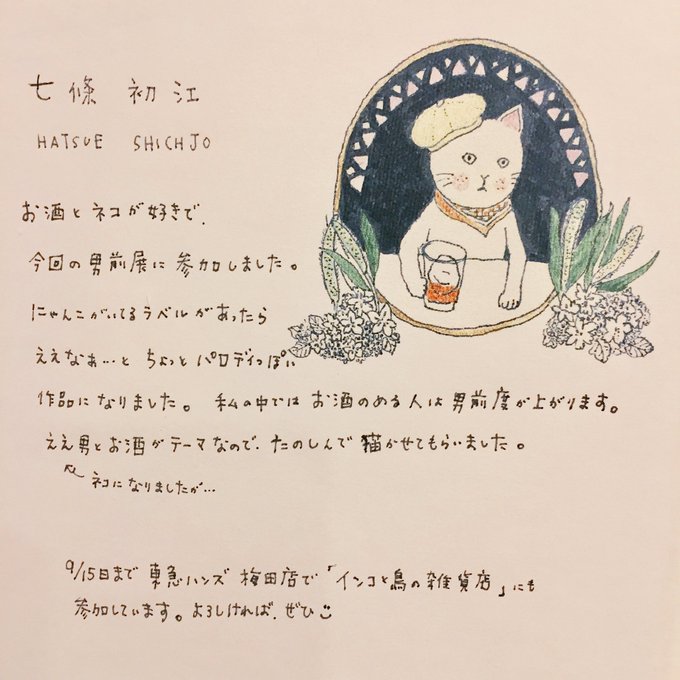 七條 初江
HATSUE SHICHJO
お酒とネコが好きで、
今回の男前展に参加しました。
にゃんこがいてるラベルがあったら
ええなぁ…と ちょっとパロディっぽい
作品になりました。 私の中では お酒のめる人は男前度が上がります。
ええ男とお酒がテーマなので、たのしんで 描かせてもらいました。
ネコになりましたが…
9/15日まで 東急ハンズ 梅田店で「インコと鳥の雑貨店」にも
参加しています。よろしければ、ぜひ